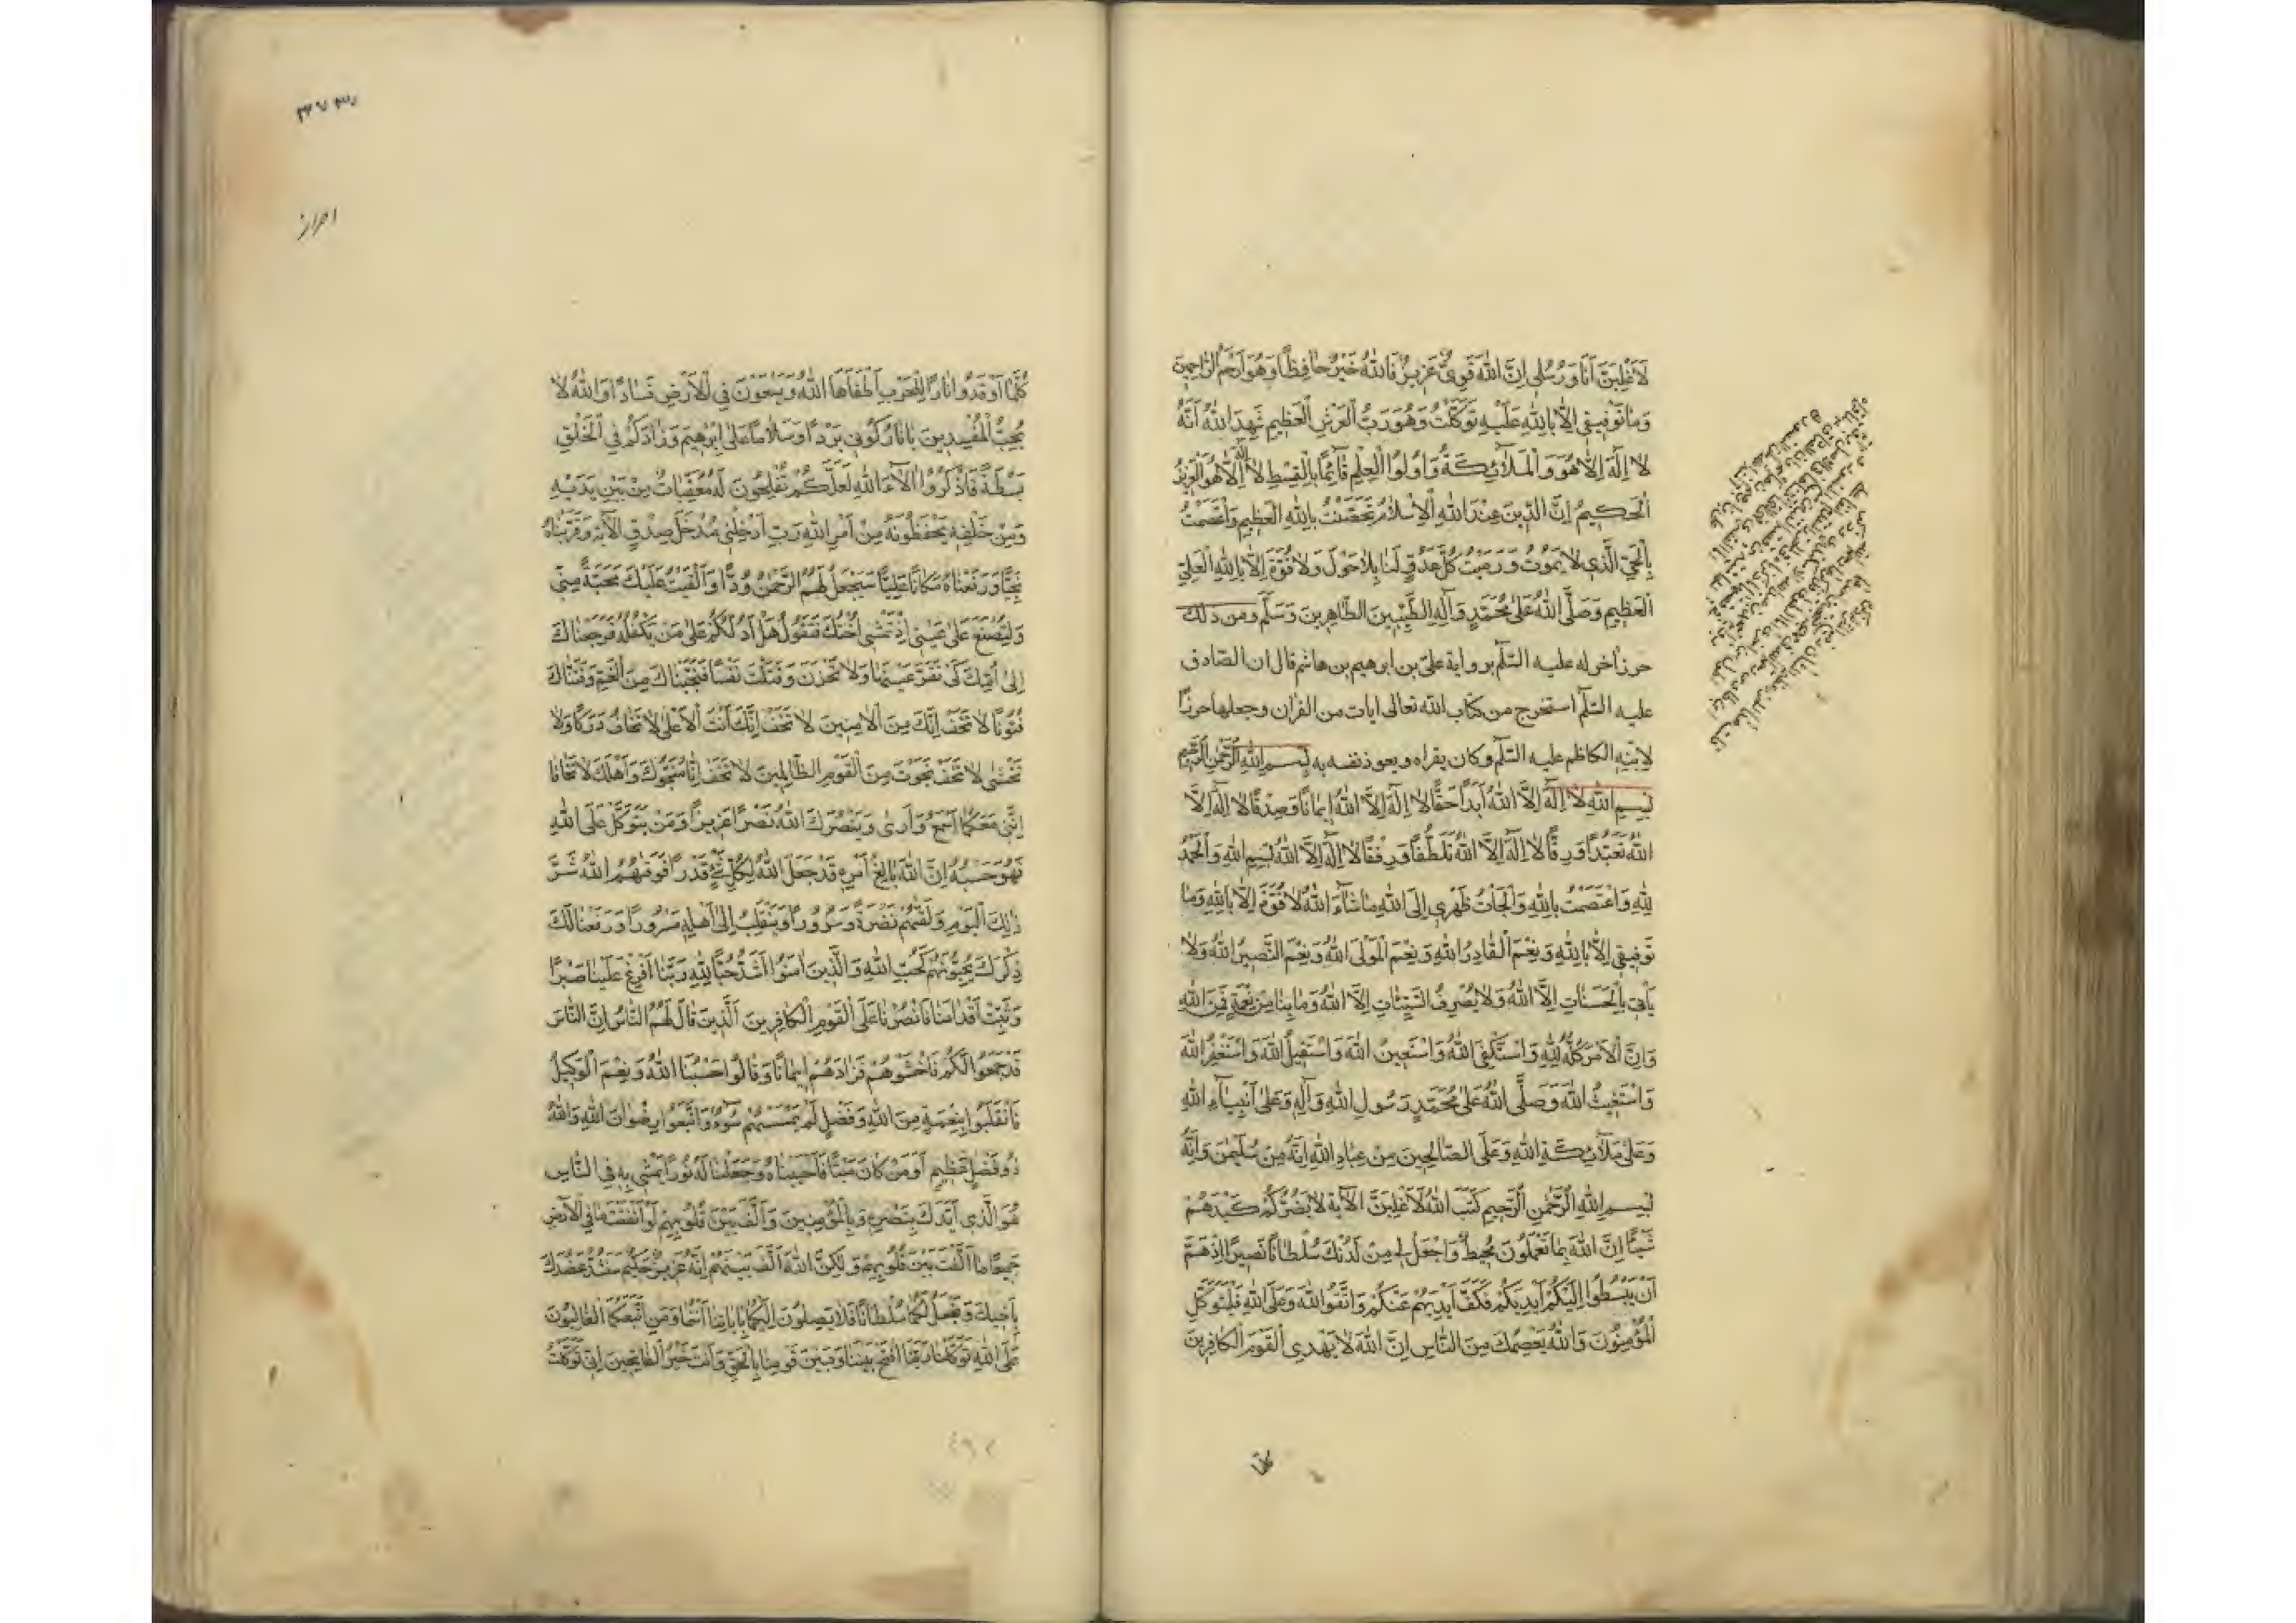 لَأَغْلِبَنَّ أَنَا وَرُسُلِي إِنَّ اللهَ قَوِيٌّ عَزِيزٌ فَاللهُ خَيْرٌ حَافِظًا وَهُوَ أَرْحَمُ الرَّاحِمِينَ
وَمَا تَوْفِيقِي إِلَّا بِاللهِ عَلَيْهِ تَوَكَّلْتُ وَهُوَ رَبُّ الْعَرْشِ الْعَظِيمِ شَهِدَ اللهُ أَنَّهُ
لَا إِلَهَ إِلَّا هُوَ وَالْمَلَائِكَةُ وَأُولُوا الْعِلْمِ قَائِمًا بِالْقِسْطِ لَا إِلَهَ إِلَّا هُوَ الْعَزِيزُ
الْحَكِيمُ إِنَّ الدِّينَ عِنْدَ اللهِ الْإِسْلَامُ تَحَصَّنْتُ بِاللهِ الْعَظِيمِ وَاعْتَصَمْتُ
بِالْحَيِّ الَّذِي لَا يَمُوتُ وَرَمَيْتُ كُلَّ عَدُوٍّ لَنَا بِلَا حَوْلَ وَلَا قُوَّةَ إِلَّا بِاللهِ الْعَلِيِّ
الْعَظِيمِ وَصَلَّى اللهُ عَلَى مُحَمَّدٍ وَآلِهِ الطَّيِّبِينَ الطَّاهِرِينَ وَسَلَّمَ ومن ذلك
حرز آخر له عليه السّلم برواية علىّ بن ابرهيم بن هاشم قال ان الصّادق
عليه السّلم استخرج من كتاب الله تعالى ايات من القرآن وجعلها حرزًا
لِابْنِهِ الكاظم عليه السّلم وكان يقراه ويعوذ نفسه به بِسْمِ اللهِ الرَّحْمنِ الرَّحِيمِ
بِسْمِ اللهِ لَا إِلَهَ إِلَّا اللهُ أَبَدًا حَقًّا لَا إِلَهَ إِلَّا اللهُ إِيمَانًا وَصِدْقًا لَا إِلَهَ إِلَّا
اللهُ تَعَبُّدًا وَرِقًّا لَا إِلَهَ إِلَّا اللهُ تَلَطُّفًا وَرِفْقًا لَا إِلَهَ إِلَّا اللهُ بِسْمِ اللهِ وَالْحَمْدُ
لِلهِ وَاعْتَصَمْتُ بِاللهِ وَأَلْجَأْتُ ظَهْرِي إِلَى اللهِ مَا شَاءَ اللهُ لَا قُوَّةَ إِلَّا بِاللهِ وَمَا
تَوْفِيقِي إِلَّا بِاللهِ وَنِعْمَ الْقَادِرُ اللهُ وَنِعْمَ الْمَوْلَى اللهُ وَنِعْمَ النَّصِيرُ اللهُ وَلَا
يَأْتِي بِالْحَسَنَاتِ إِلَّا اللهُ وَلَا يَصْرِفُ السَّيِّئَاتِ إِلَّا اللهُ وَمَا بِنَا مِنْ نِعْمَةٍ فَمِنَ اللهِ
وَإِنَّ الْأَمْرَ كُلَّهُ لِلهِ وَأَسْتَكْفِي اللهَ وَأَسْتَعِينُ اللهَ وَأَسْتَقِيلُ اللهَ وَأَسْتَغْفِرُ اللهَ
وَأَسْتَغِيثُ اللهَ وَصَلَّى اللهُ عَلَى مُحَمَّدٍ رَسُولِ اللهِ وَآلِهِ وَعَلَى أَنْبِيَاءِ اللهِ
وَعَلَى مَلَائِكَةِ اللهِ وَعَلَى الصَّالِحِينَ مِنْ عِبَادِ اللهِ إِنَّهُ مِنْ سُلَيْمَنَ وَإِنَّهُ
بِسْمِ اللهِ الرَّحْمنِ الرَّحِيمِ كَتَبَ اللهُ لَأَغْلِبَنَّ الآية لَا يَضُرُّكُمْ كَيْدُهُمْ
شَيْئًا إِنَّ اللهَ بِمَا تَعْمَلُونَ مُحِيطٌ وَاجْعَلْ لِي مِنْ لَدُنْكَ سُلْطَانًا نَصِيرًا إِذْ هَمَّ
أَنْ يَبْسُطُوا إِلَيْكُمْ أَيْدِيَكُمْ فَكَفَّ أَيْدِيَهُمْ عَنْكُمْ وَاتَّقُوا اللهَ وَعَلَى اللهِ فَلْيَتَوَكَّلِ
الْمُؤْمِنُونَ وَاللهُ يَعْصِمُكَ مِنَ النَّاسِ إِنَّ اللهَ لَا يَهْدِي الْقَوْمَ الْكَافِرِينَ
كلّما
احراز
كُلَّمَا أَوْقَدُوا نَارًا لِلْحَرْبِ أَطْفَأَهَا اللهُ وَيَسْعَوْنَ فِي الْأَرْضِ فَسَادًا وَاللهُ لَا
يُحِبُّ الْمُفْسِدِينَ يَا نَارُ كُونِي بَرْدًا وَسَلَامًا عَلَى إِبْرَهِيمَ وَزَادَكُمْ فِي الْخَلْقِ
بَسْطَةً فَاذْكُرُوا آلَاءَ اللهِ لَعَلَّكُمْ تُفْلِحُونَ لَهُ مُعَقِّبَاتٌ مِنْ بَيْنِ يَدَيْهِ
وَمِنْ خَلْفِهِ يَحْفَظُونَهُ مِنْ أَمْرِ اللهِ رَبِّ أَدْخِلْنِي مُدْخَلَ صِدْقٍ الآية وَقَرَّبْنَاهُ
نَجِيًّا وَرَفَعْنَاهُ مَكَانًا عَلِيًّا سَيَجْعَلُ لَهُمُ الرَّحْمنُ وُدًّا وَأَلْقَيْتُ عَلَيْكَ مَحَبَّةً مِنِّي
وَلِتُصْنَعَ عَلَى عَيْنِي إِذْ تَمْشِي أُخْتُكَ فَتَقُولُ هَلْ أَدُلُّكُمْ عَلَى مَنْ يَكْفُلُهُ فَرَجَعْنَاكَ
إِلَى أُمِّكَ كَيْ تَقَرَّ عَيْنُهَا وَلَا تَحْزَنَ وَقَتَلْتَ نَفْسًا فَنَجَّيْنَاكَ مِنَ الْغَمِّ وَفَتَنَّاكَ
فُتُونًا لَا تَخَفْ إِنَّكَ مِنَ الْآمِنِينَ لَا تَخَفْ إِنَّكَ أَنْتَ الْأَعْلَى لَا تَخَافُ دَرَكًا وَلَا
تَخْشَى لَا تَخَفْ نَجَوْتَ مِنَ الْقَوْمِ الظَّالِمِينَ لَا تَخَفْ إِنَّا مُنَجُّوكَ وَأَهْلَكَ لَا تَخَافَا
إِنَّنِي مَعَكُمَا أَسْمَعُ وَأَرَى وَيَنْصُرَكَ اللهُ نَصْرًا عَزِيزًا وَمَنْ يَتَوَكَّلْ عَلَى اللهِ
فَهُوَ حَسْبُهُ إِنَّ اللهَ بَالِغُ أَمْرِهِ قَدْ جَعَلَ اللهُ لِكُلِّ شَيْءٍ قَدْرًا فَوَقَاهُمُ اللهُ شَرَّ
ذَلِكَ الْيَوْمِ وَلَقَّاهُمْ نَضْرَةً وَسُرُورًا وَيَنْقَلِبُ إِلَى أَهْلِهِ مَسْرُورًا وَرَفَعْنَا لَكَ
ذِكْرَكَ يُحِبُّونَهُمْ كَحُبِّ اللهِ وَالَّذِينَ آمَنُوا أَشَدُّ حُبًّا لِلهِ رَبَّنَا أَفْرِغْ عَلَيْنَا صَبْرًا
وَثَبِّتْ أَقْدَامَنَا وَانْصُرْنَا عَلَى الْقَوْمِ الْكَافِرِينَ الَّذِينَ قَالَ لَهُمُ النَّاسُ إِنَّ النَّاسَ
قَدْ جَمَعُوا لَكُمْ فَاخْشَوْهُمْ فَزَادَهُمْ إِيمَانًا وَقَالُوا حَسْبُنَا اللهُ وَنِعْمَ الْوَكِيلُ
فَانْقَلَبُوا بِنِعْمَةٍ مِنَ اللهِ وَفَضْلٍ لَمْ يَمْسَسْهُمْ سُوءٌ وَاتَّبَعُوا رِضْوَانَ اللهِ وَاللهُ
ذُو فَضْلٍ عَظِيمٍ أَوَمَنْ كَانَ مَيْتًا فَأَحْيَيْنَاهُ وَجَعَلْنَا لَهُ نُورًا يَمْشِي بِهِ فِي النَّاسِ
هُوَ الَّذِي أَيَّدَكَ بِنَصْرِهِ وَبِالْمُؤْمِنِينَ وَأَلَّفَ بَيْنَ قُلُوبِهِمْ لَوْ أَنْفَقْتَ مَا فِي الْأَرْضِ
جَمِيعًا مَا أَلَّفْتَ بَيْنَ قُلُوبِهِمْ وَلَكِنَّ اللهَ أَلَّفَ بَيْنَهُمْ إِنَّهُ عَزِيزٌ حَكِيمٌ سَنَشُدُّ عَضُدَكَ
بِأَخِيكَ وَنَجْعَلُ لَكُمَا سُلْطَانًا فَلَا يَصِلُونَ إِلَيْكُمَا بِآيَاتِنَا أَنْتُمَا وَمَنِ اتَّبَعَكُمَا الْغَالِبُونَ
عَلَى اللهِ تَوَكَّلْنَا رَبَّنَا افْتَحْ بَيْنَنَا وَبَيْنَ قَوْمِنَا بِالْحَقِّ وَأَنْتَ خَيْرُ الْفَاتِحِينَ إِنِّي تَوَكَّلْتُ